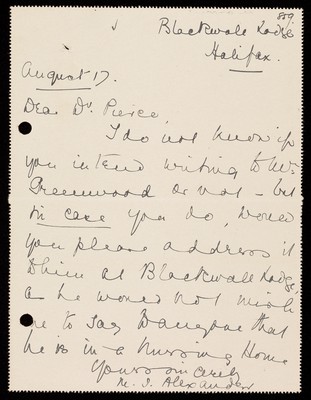 859
Blackwall Lodge
Halifax.
August 17.
Dear Dr. Pierce,
I do not know if
you intend writing to Mr.
Greenwood or not - but
in case you do, would
you please address it
to him at Blackwall Lodge,
as he would not wish
me to say that
he is in a Nursing Home
Yours sincerely
M. I. Alexander